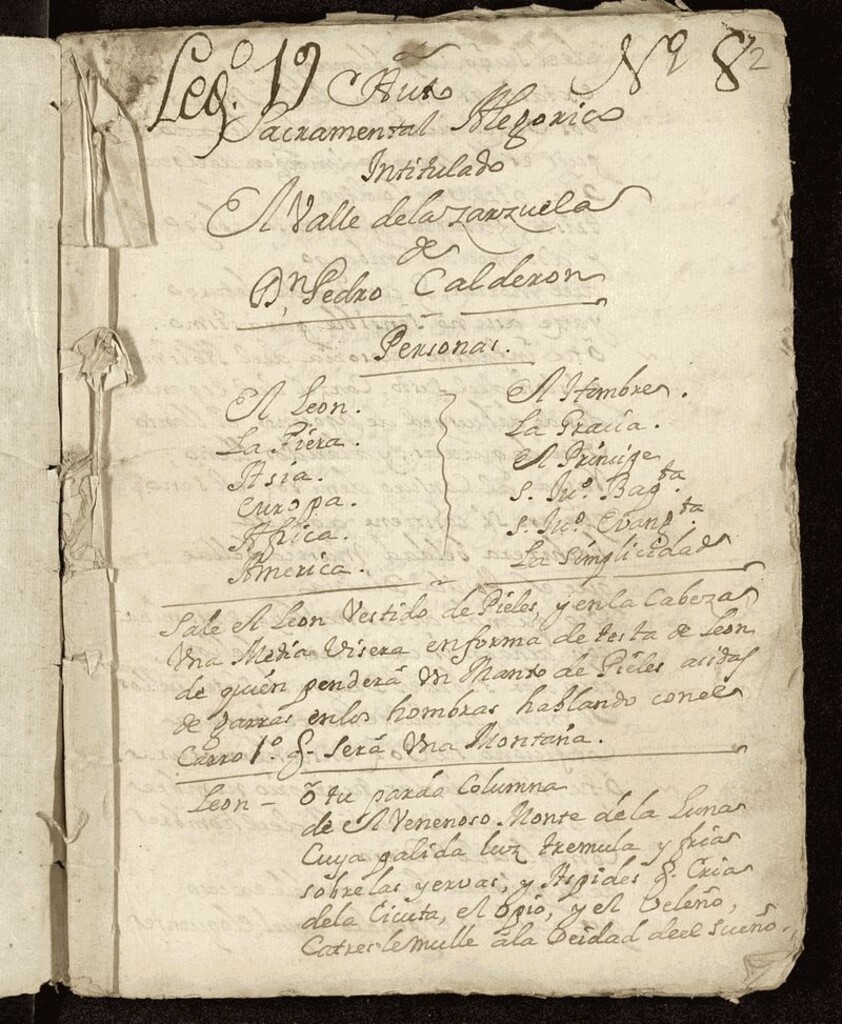 Leg.º 19 Nº 82
Auto
Sacramental Alegorico
Intitulado
El Valle dela zarzuela
de
Dn Pedro Calderon
Personas.
El Leon.
La Fiera.
Asia.
Europa.
Africa.
America.
El Hombre.
La Gracia.
El Principe
S. Juº. Bapta.
S. Juº. Evangta.
La Simplicidad
Sale el Leon Vestido de Pieles, y en la Cabeza
Una Media Visera en forma de testa de Leon
de quien penderá Un Manto de Pieles asidas
de garras enlos hombros hablando con el
Carro 1º. q. Será Una Montaña.
Leon - ô tu parda Columna
de el Venenoso Monte de la Luna
Cuya palida luz tremula y fria
sobre las yervas, y Aspides q. Cria
dela Cicuta, el opio, y el veleño,
Catres le mulle âla Deidad deel sueño.